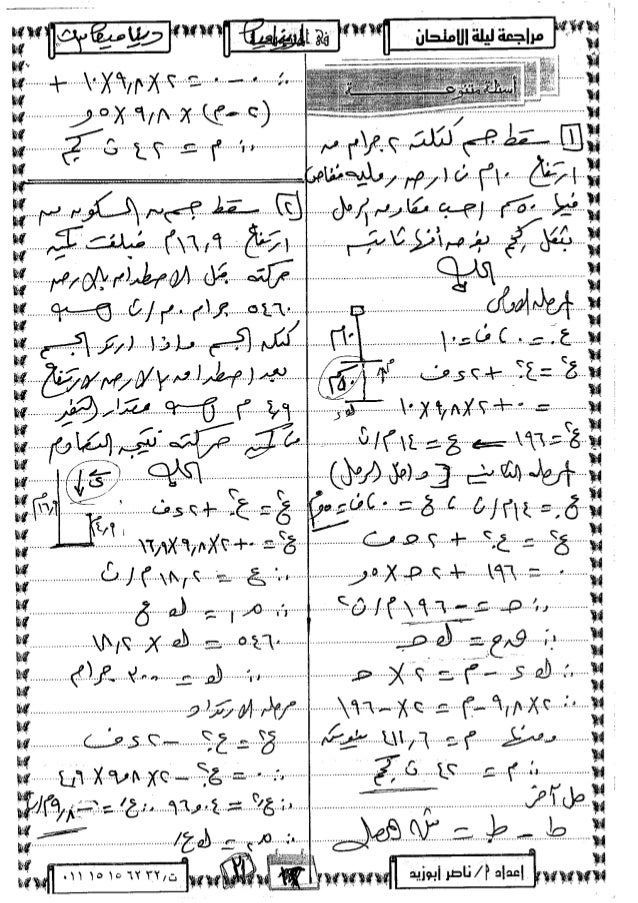 مراجعة ليلة الامتحان
ديناميكا
أسئلة متنوعة
١) سقط جسم كتلته ٢ جرام من
ارتفاع ١٠م نحو أرض رملية فغاص
فيها ٥٠سم احسب مقاومة الرمل
بثقل كجم بفرض أنها ثابتة
الحل
المرحلة الأولى
ع. = ٠ ، ف = ١٠
ع٢ = ع.٢ + ٢ د ف
= ٠ + ٢ × ٩,٨ × ١٠
ع٢ = ١٩٦ ← ع = ١٤ م/ث
المرحلة الثانية [داخل الرمل]
ع. = ١٤ م/ث ، ع = ٠ ، ف = ٥و م
ع٢ = ع.٢ + ٢ حـ ف
٠ = ١٩٦ + ٢ حـ × ٥و
∴ حـ = -١٩٦ م/ث٢
∵ ك د - م = ٢ × حـ
∴ ٢ × ٩,٨ - م = ٢ × -١٩٦
ومنها م = ٤١١,٦ نيوتن
∴ م = ٤٢ ث كجم
حل آخر
ط - ط. = ش
∴ ٠ - ٠ = ٢ × ٩,٨ × ١٠ +
(٢ - م) × ٩,٨ × ٥و
∴ م = ٤٢ ث كجم
٢) سقط جسم من السكون من
ارتفاع ١٦,٩ م فبلغت كمية
حركته قبل الاصطدام بالأرض
٥٤٦٠ جرام . م/ث احسب
كتلة الجسم وإذا ارتد الجسم
بعد اصطدامه بالأرض لارتفاع
٤,٩ م احسب مقدار التغير
في كمية حركته نتيجة التصادم
الحل
١٦,٩م
٤,٩م
ع٢ = ع.٢ + ٢ د ف
ع٢ = ٠ + ٢ × ٩,٨ × ١٦,٩
∴ ع = ١٨,٢ م/ث
∵ م١ = ك ع
٥٤٦٠ = ك × ١٨,٢
∴ ك = ٣٠٠ جرام
مرحلة الارتداد
ع٢ = ع.٢ - ٢ د ف
∴ ٠ = ع.٢ - ٢ × ٩,٨ × ٤,٩
∴ ع.٢ = ٩٦,٠٤ ∴ ع/ = -٩,٨ م/ث
∴ م٢ = ك ع/
إعداد م/ ناصر أبوزيد
٢١
ت/ ٠١١ ١٥ ١٥ ٦٢٣٢